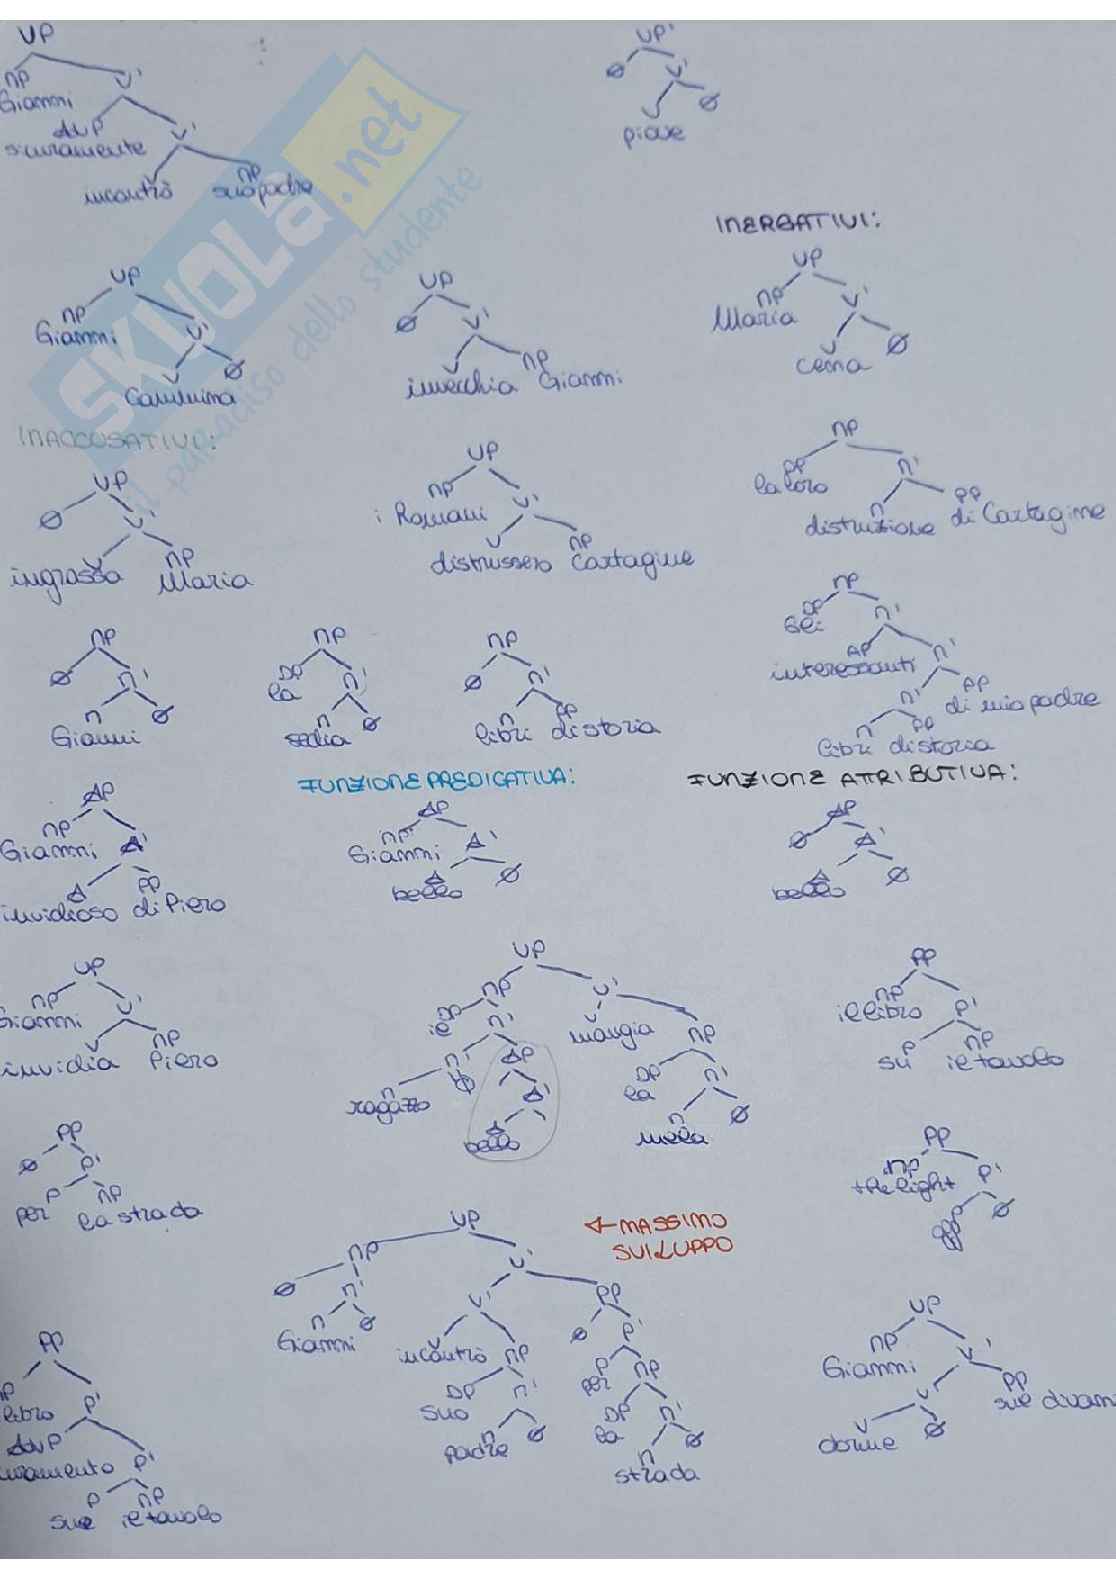 VP
VP'
NP
V'
Ø
V'
Gianni
AdvP
V'
V
Ø
sicuramente
piove
incontrò
NP
suo padre
SKUOLA.net
il paradiso dello studente
INERGATIVI:
VP
VP
VP
NP
Ø
V'
NP
V'
Gianni
V'
Maria
V
Ø
V
NP
V
Ø
cammina
invecchia Gianni
cena
INACCUSATIVI:
VP
VP
NP
Ø
V'
NP
V'
PP
N'
i Romani
la loro
V
NP
V
NP
N
PP
ingrassa Maria
distrussero Cartagine
distruzione di Cartagine
NP
NP
NP
NP
Ø
N'
DP
N'
Ø
N'
DP
N'
la
Gli
N
Ø
N
Ø
N
PP
AP
N'
Gianni
sedia
libri di storia
interessanti
N'
PP
di mio padre
N
PP
libri di storia
FUNZIONE PREDICATIVA:
FUNZIONE ATTRIBUTIVA:
AP
AP
AP
NP
A'
NP
A'
Ø
A'
Gianni
Gianni
A
PP
A
Ø
A
Ø
invidioso di Piero
bello
bello
VP
VP
PP
NP
V'
NP
V'
NP
P'
Gianni
DP
N'
V
NP
il libro
il
mangia
V
NP
P
NP
invidia Piero
su il tavolo
N'
AP
DP
N'
la
N
Ø
A'
N
Ø
ragazzo
A
mela
bello
PP
PP
Ø
P'
NP
P'
the light
P
NP
P
Ø
per la strada
off
VP
← MASSIMO
SVILUPPO
NP
V'
Ø
N'
V'
PP
N
Ø
V
NP
Ø
P'
Gianni
incontrò
DP
N'
P
NP
suo
per
N
Ø
DP
N'
padre
la
N
Ø
strada
VP
NP
V'
Gianni
V'
PP
V
Ø
dorme
PP
P'
libro
AdvP
P'
P
NP
sul il tavolo